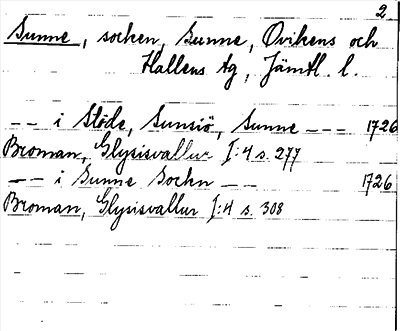 2
Sunne, socken, Sunne, Ovikens och
Hallens tg, Jämtl. l.
-- i Stöde, Sunsiö, Sunne --- 1726
Broman, Glysisvallur I:4 s. 277
-- i Sunne Sockn -- 1726
Broman, Glysisvallur I:4 s. 308